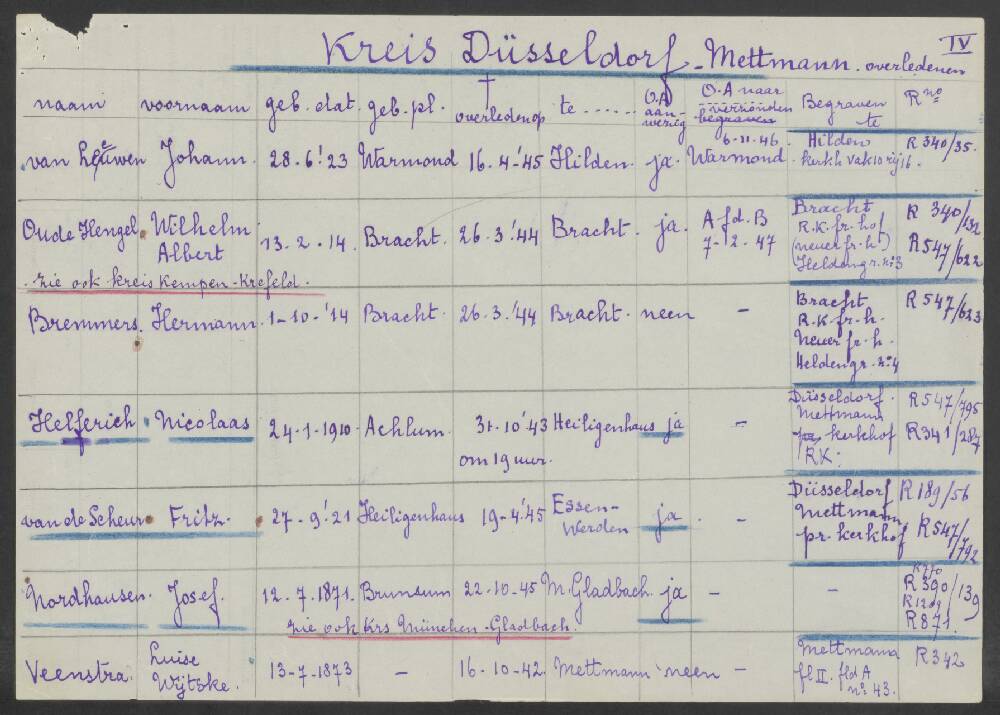 IV
Kreis Düsseldorf - Mettmann. overledenen
naam voornaam geb. dat. geb. pl. † overleden op te ...... O.A. aanwezig O.A naar verzonden begraven Begraven te R no
van Leeuwen Johann. 28-6-'23 Warmond 16.4-'45 Hilden. ja. 6-11-46. Warmond. Hilden kerkh vak 10 rij 16. R 340/35.
Oude Hengel. Wilhelm Albert 13-2-14. Bracht. 26.3.'44 Bracht. ja. Afd. B 7-2-47 Bracht R.K. fr. hof (neuer fr. h.) Heldengr. no 3 R 340/132 R547/622
zie ook kreis Kempen-Krefeld.
Bremmers. Hermann. 1-10-'14 Bracht. 26.3.'44 Bracht. neen - Bracht R.K fr. h. Neuer fr. h. Heldengr. no 4 R547/623
Helferich Nicolaas 24-1-1910 Achlum. 31-10-'43 om 19 uur. Heiligenhaus ja - Düsseldorf. Mettmann kerkhof RK. R547/795 R341/287
van de Scheur Fritz. 27-9-'21 Heiligenhaus 19-4-'45 Essen-Werden ja. - Düsseldorf Mettmann pr. kerkhof R189/56 R547/792
Nordhausen. Josef. 12.7.1871. Brunsum 22-10-45 M. Gladbach. ja - - R390/139 R871.
zie ook Krs München-Gladbach.
Veenstra. Luise Wijtske. 13-7-1873 - 16-10-42. Mettmann neen - Mettmann fl II. fld A no 43. R342